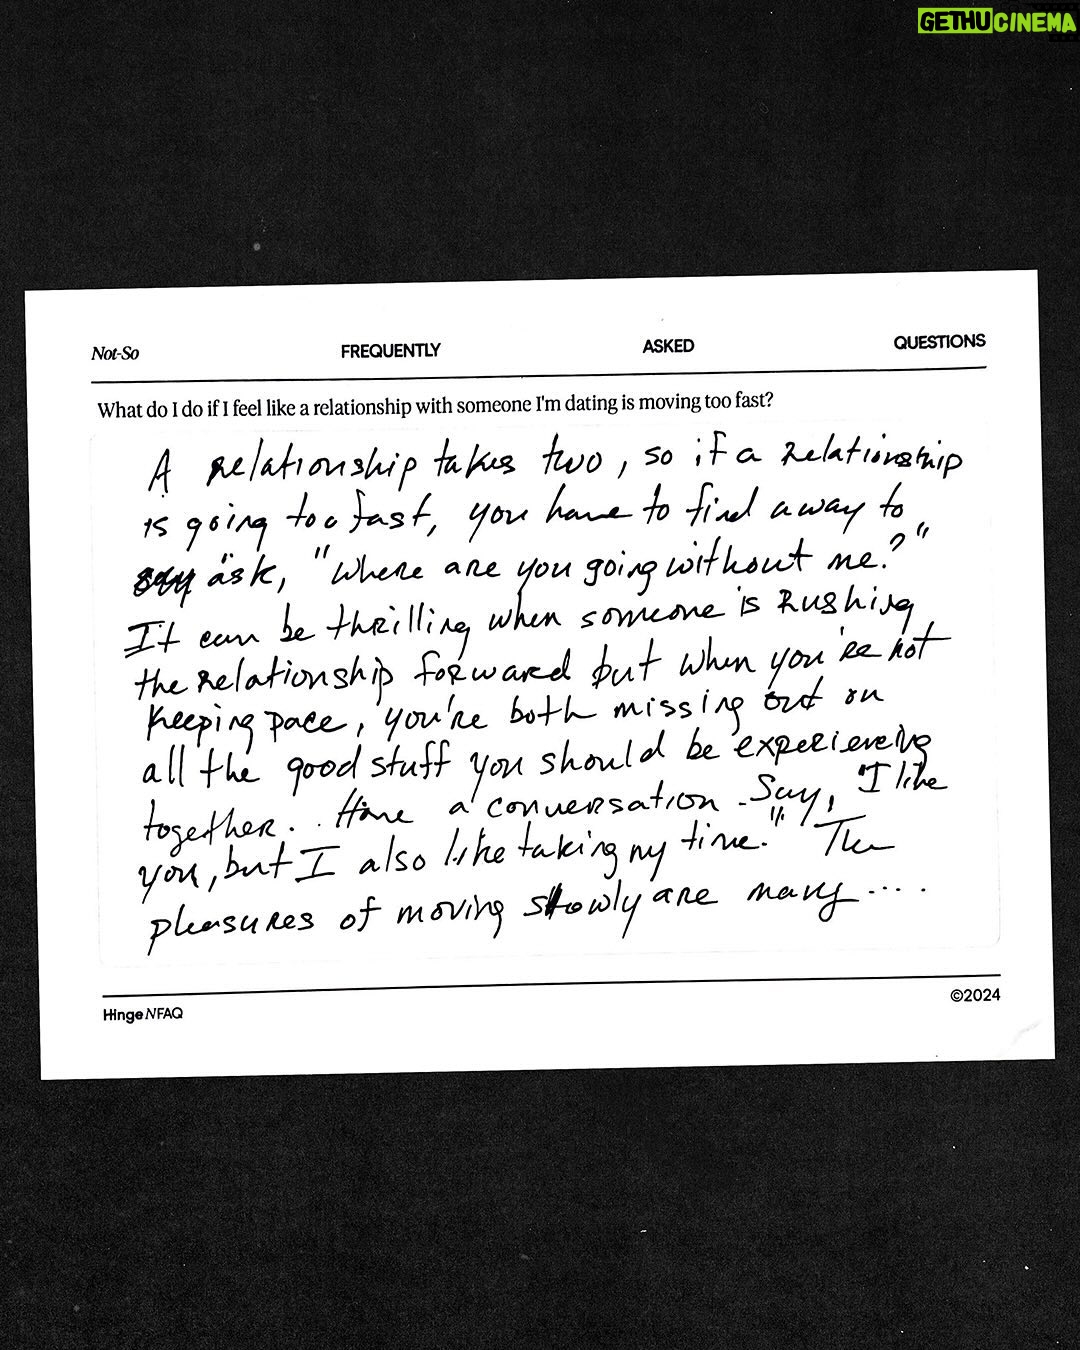 GETHUCINEMA
Not-So FREQUENTLY ASKED QUESTIONS
What do I do if I feel like a relationship with someone I'm dating is moving too fast?
A relationship takes two, so if a relationship
is going too fast, you have to find a way to
say ask, "Where are you going without me?"
It can be thrilling when someone is rushing
the relationship forward but when you're not
keeping pace, you're both missing out on
all the good stuff you should be experiencing
together. Have a conversation. Say, "I like
you, but I also like taking my time." The
pleasures of moving slowly are many....
Hinge NFAQ ©2024